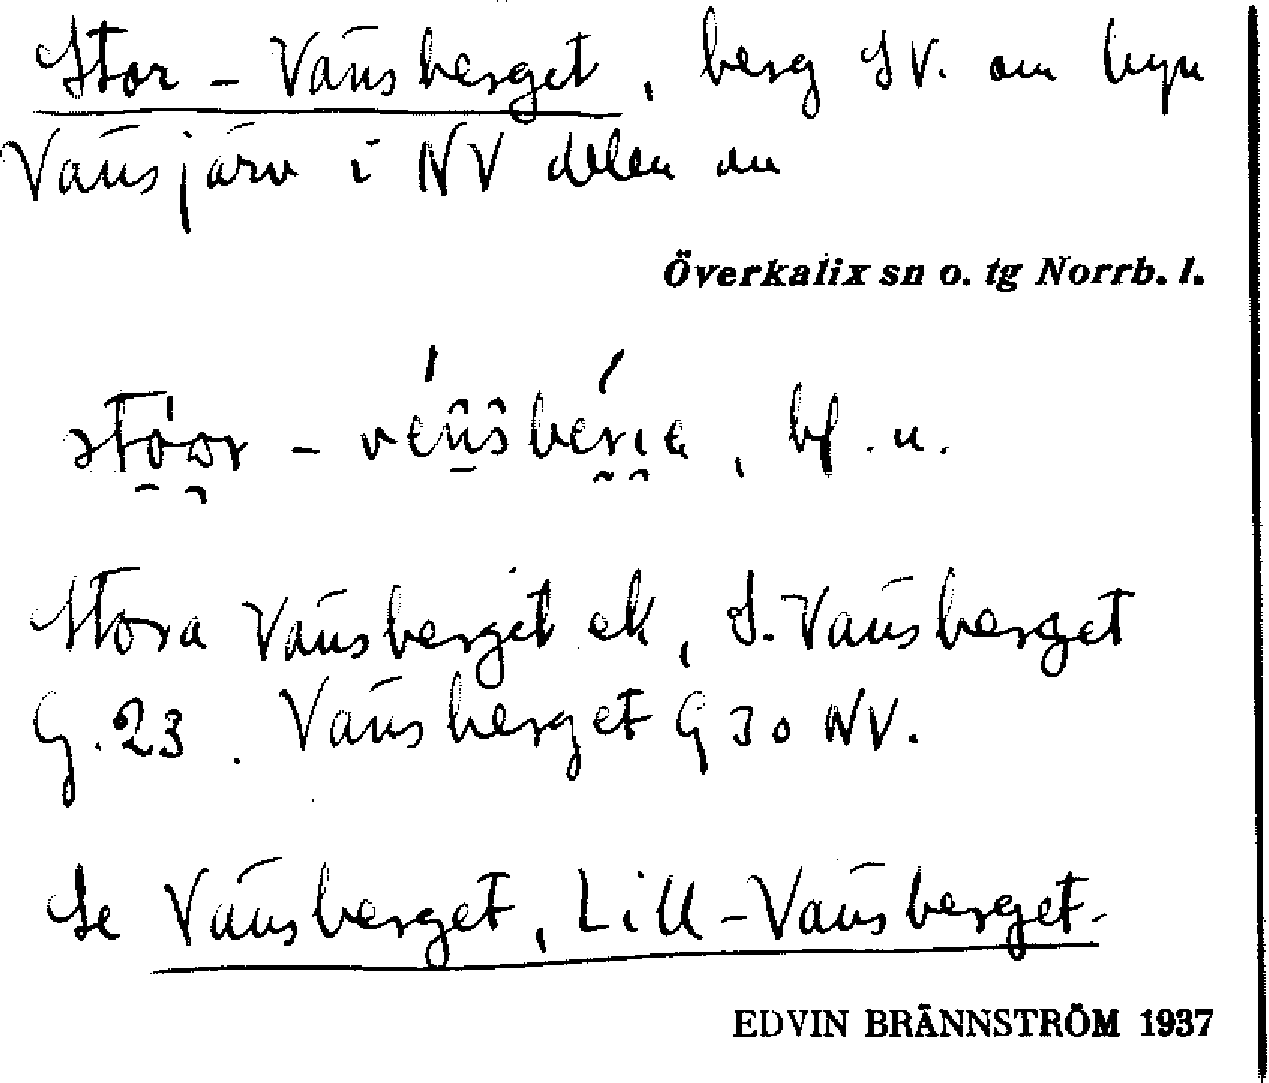 Stor-Vänsberget, berg SV. om byn
Vänsjärv i NV delen av
Överkalix sn o. tg Norrb. l.
bf. n.
Stora Vänsberget ek, S. Vänsberget
G. 23. Vänsberget G 30 NV.
Se Vänsberget, Lill-Vänsberget.
EDVIN BRÄNNSTRÖM 1937